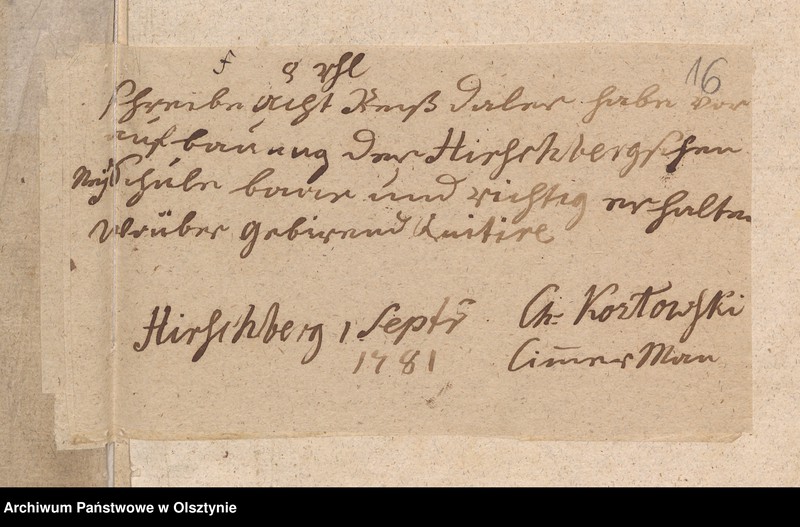 8 rhl
16
schreibe Acht Reiß daler habe vor
auf bauung der Hirschbergschen
Schule baar und richtig erhalten
worüber gebirend Quitire
Hirschberg 1 Septr Ch: Kozlowski
1781 Cim̄er Man
Archiwum Państwowe w Olsztynie